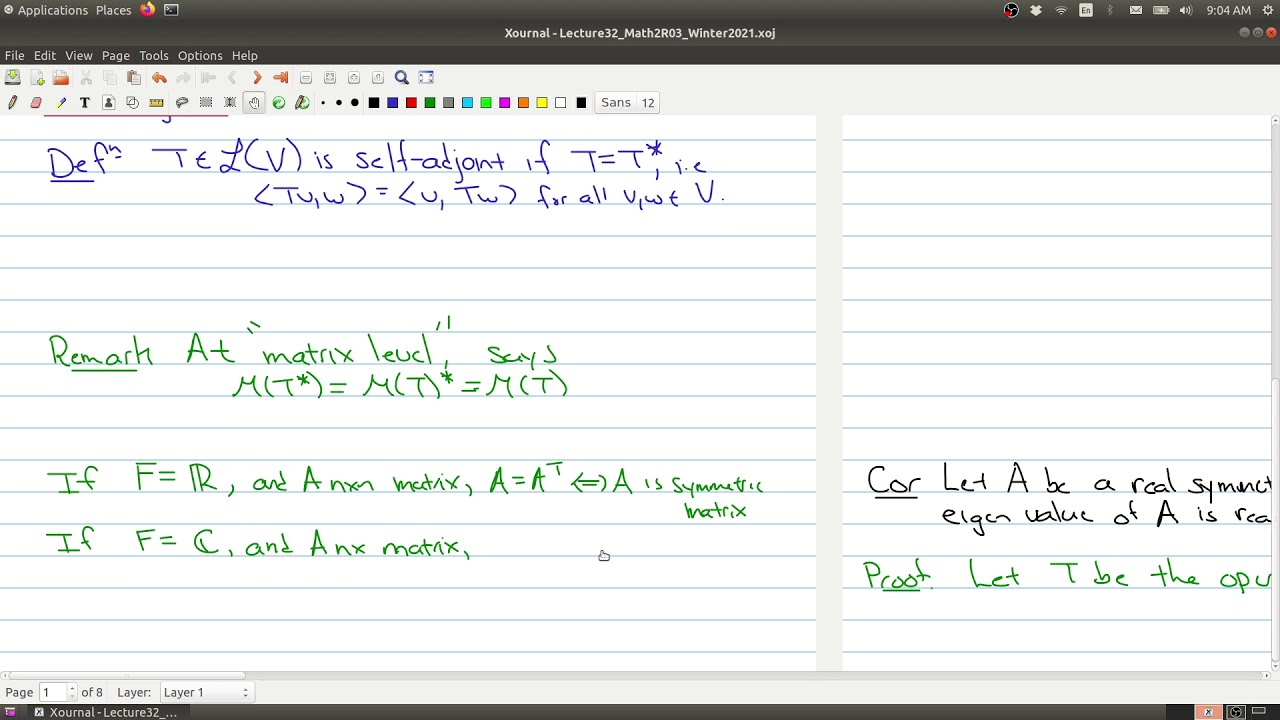 Applications Places
9:04 AM
Xournal - Lecture32_Math2R03_Winter2021.xoj
File Edit View Page Tools Options Help
Sans 12
Defⁿ T ∈ ℒ(V) is self-adjoint if T=T*, i.e
⟨Tv,w⟩ = ⟨v, Tw⟩ for all v,w ∈ V.
Remark At "matrix level", says
M(T*) = M(T)* = M(T)
If F = ℝ, and A nxn matrix, A = Aᵀ ⟺ A is symmetric
matrix
If F = ℂ, and A nx matrix,
Cor Let A be a real symmet
eigen value of A is rea
Proof. Let T be the op
Page 1 of 8 Layer: Layer 1
Xournal - Lecture32_...
En